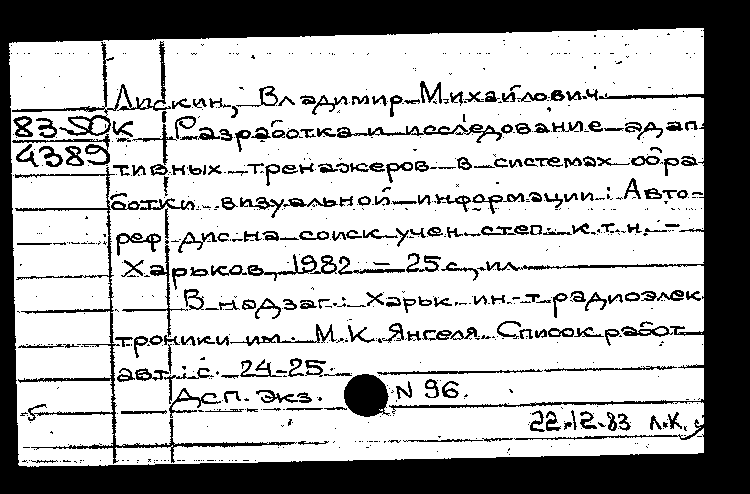 Лискин, Владимир Михайлович
83-50к Разработка и исследование адап
4389 тивных тренажеров в системах обра
ботки визуальной информации: Авто-
реф дис. на соиск учен. степ. к.т.н. -
Харьков, 1982 - 25 с., ил
В надзаг.: Харьк. ин-т радиоэлек
троники им. М.К. Янгеля. Список работ
авт.: с. 24-25.
Дсп. Экз. N 96.
22.12.83 Л.К.